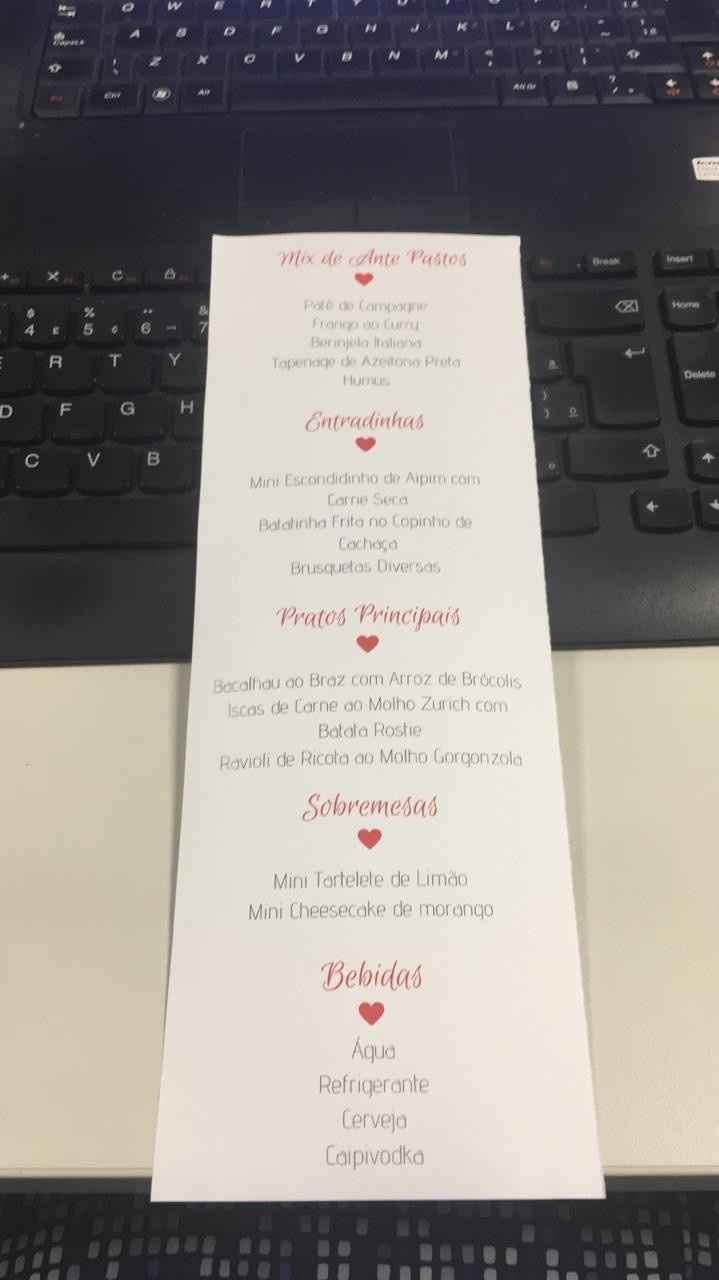 Q W E R T
A S D F G H J K L Ç
Z X C V B N M
Ctrl Alt Alt Gr
Break Insert
$ % ¨ &
4 £ 5 ¢ 6 ¬ 7
Home
R T Y
Delete
D F G H
C V B
Mix de Ante Pastos
Patê de Campagne
Frango ao Curry
Berinjela Italiana
Tapenage de Azeitona Preta
Humus
Entradinhas
Mini Escondidinho de Aipim com
Carne Seca
Batatinha Frita no Copinho de
Cachaça
Brusquetas Diversas
Pratos Principais
Bacalhau ao Braz com Arroz de Brócolis
Iscas de Carne ao Molho Zurich com
Batata Rostie
Ravioli de Ricota ao Molho Gorgonzola
Sobremesas
Mini Tartelete de Limão
Mini Cheesecake de morango
Bebidas
Água
Refrigerante
Cerveja
Caipivodka